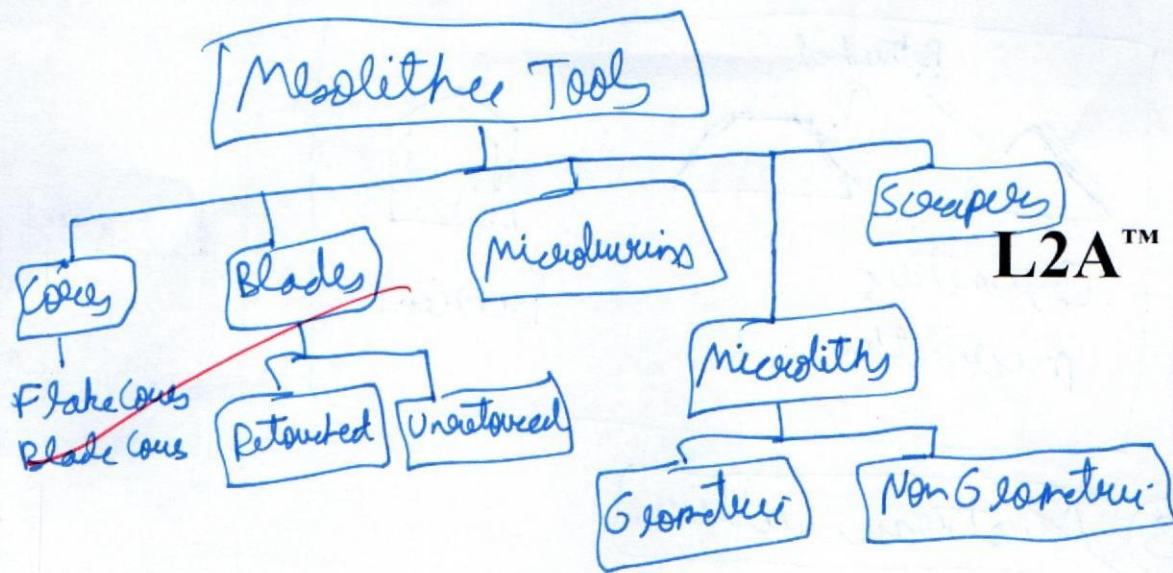 Mesolithec Tools
Scrapers
Microburins
L2A™
Cores
Blades
Microliths
Flake Cores
Blade Cores
Retouched
Unretouced
Geometric
Non Geometric